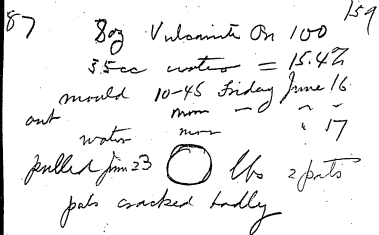 87 159
8oz Vulcanite On 100
35cc water = 15.4%
mould 10-45 Friday June 16
out mon — " " 17
water mon
pulled June 23 O lbs 2 pats
pats cracked badly